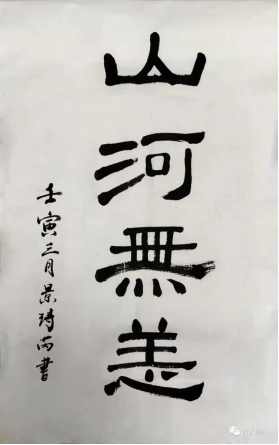 山河無恙
壬寅三月景琦丙書